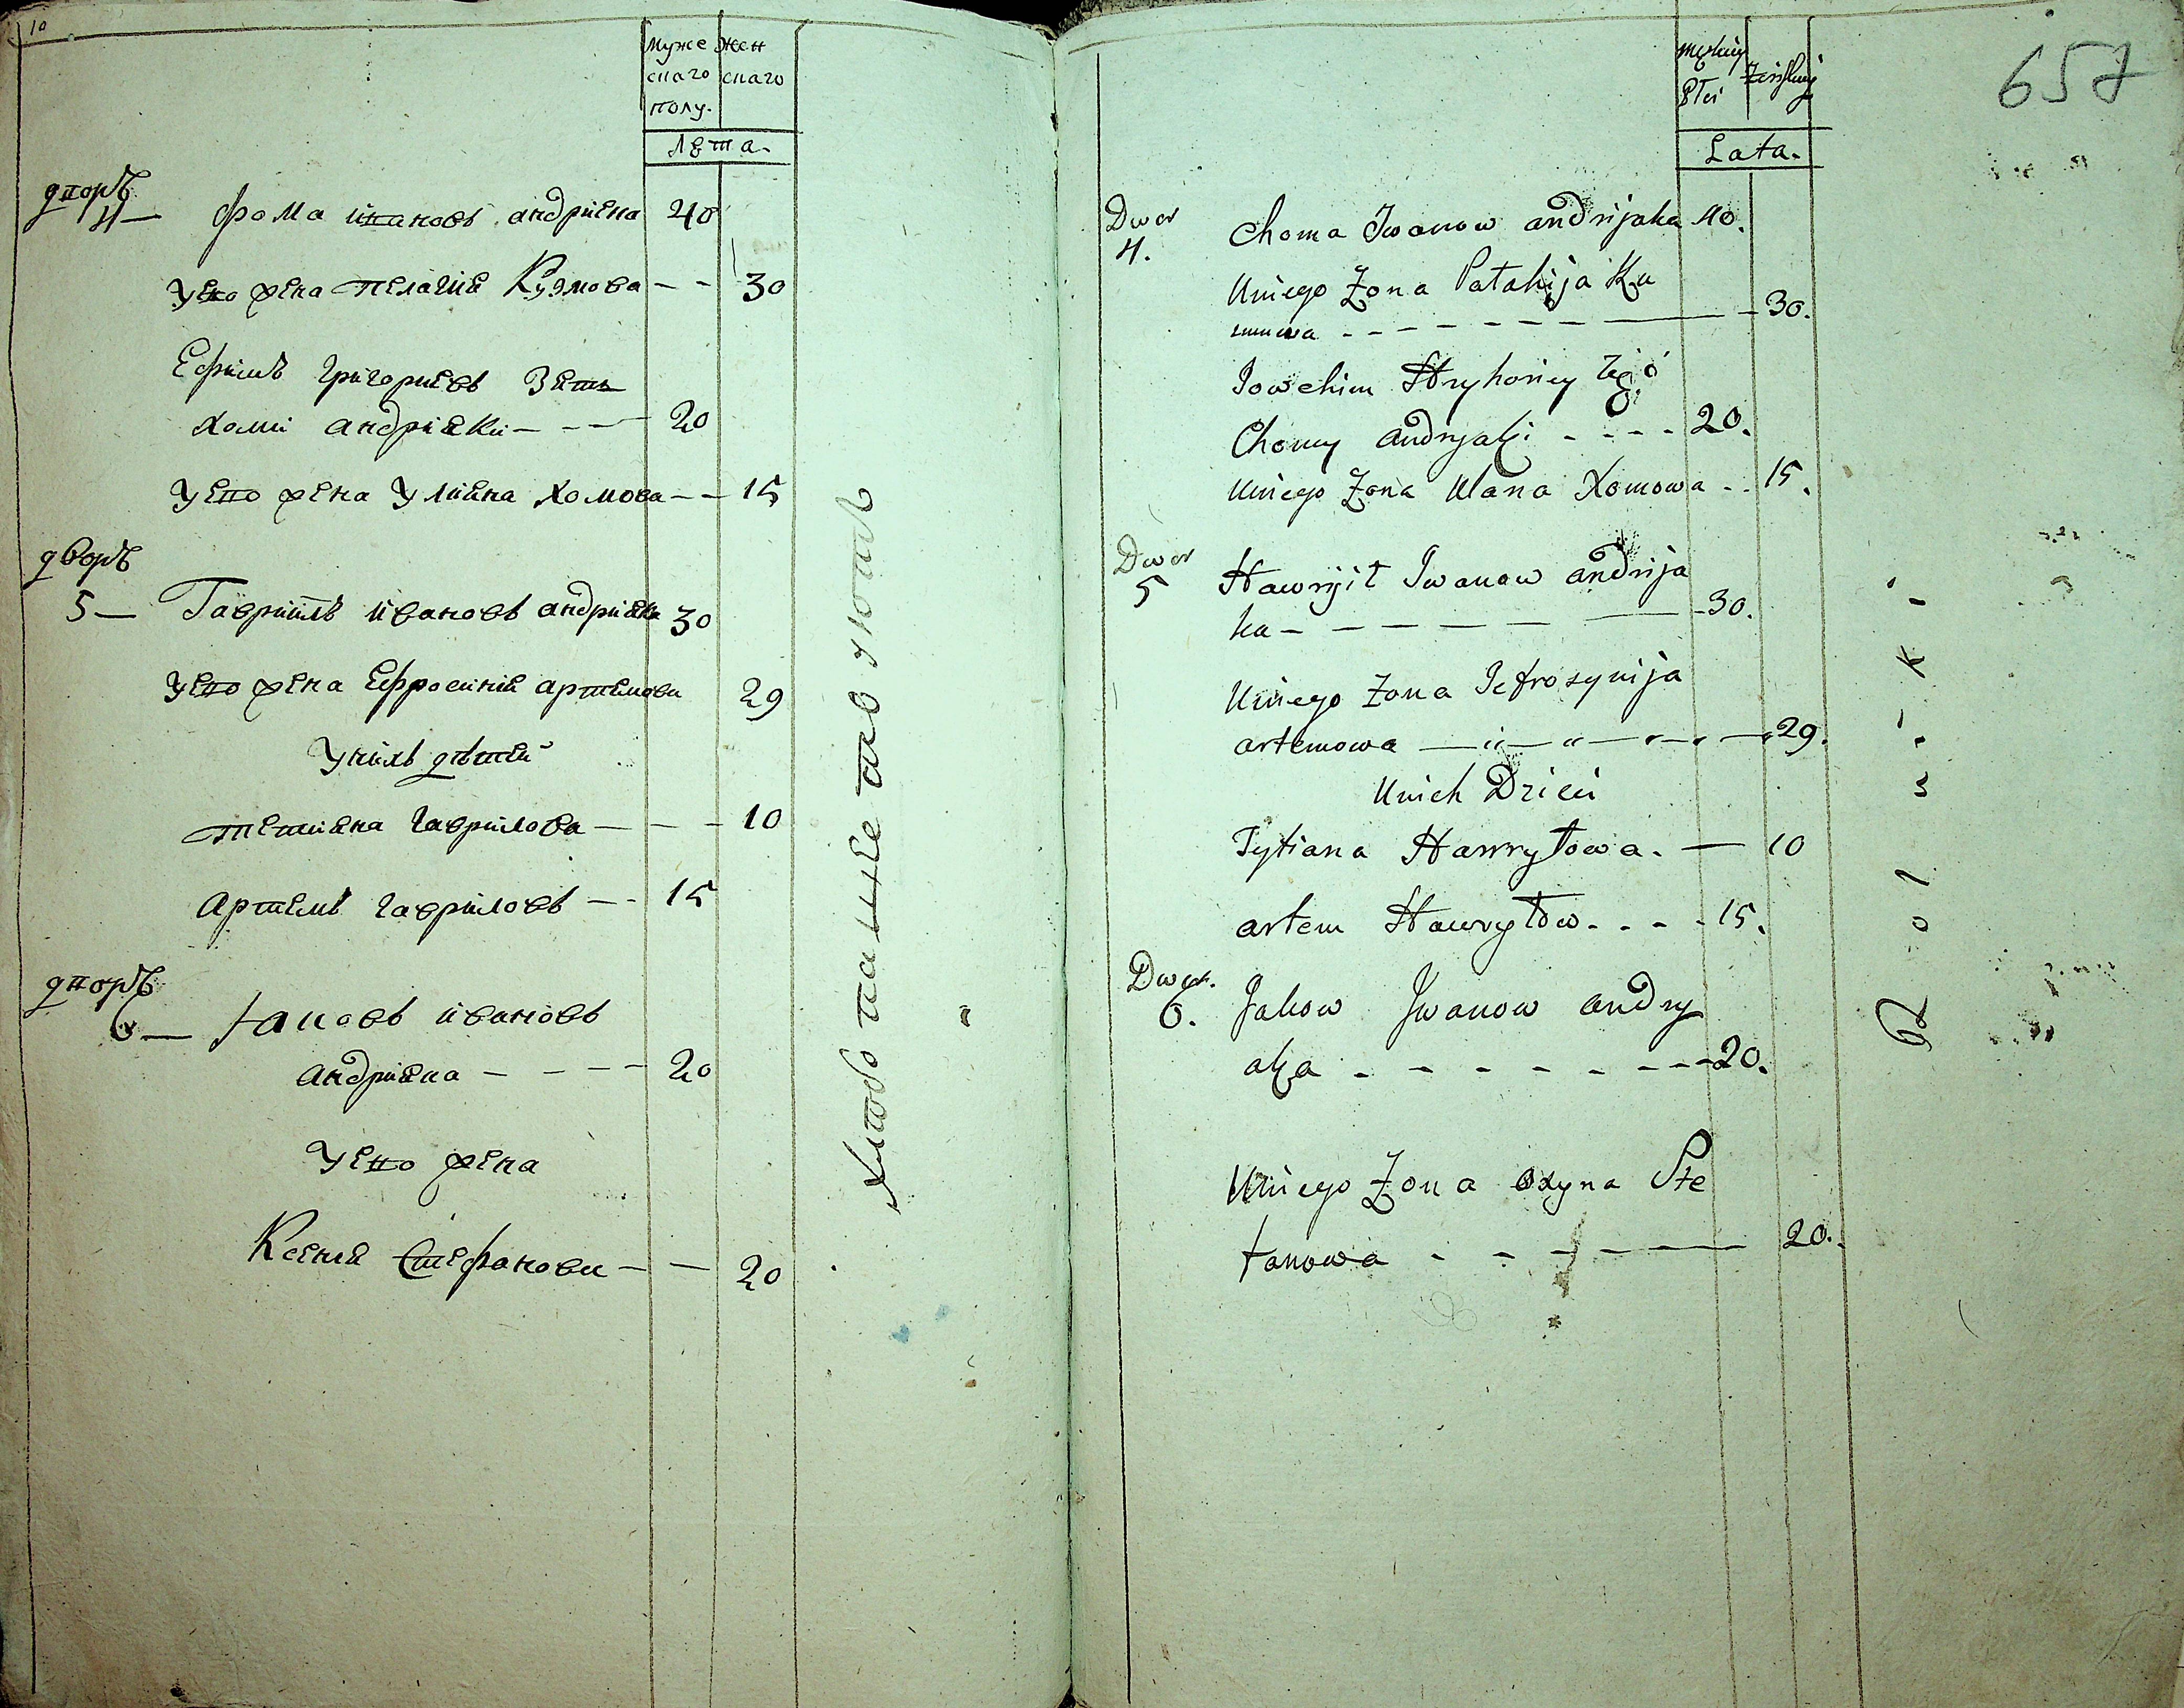 10
Муже Жен
скаго скаго
полу.
Лѣта.
дворъ
4— Фома ивановъ андрияка 40
Уево жена пелагия Кузмова — — 30
Ефимъ григориевъ Зять
хоми андрияки — — — 20
Уево жена Улияна хомова — — 15
дворъ
5— Гавриилъ ивановъ андрияка 30
Уево жена Ефросиния артимова 29
Унихъ дѣтей
тетияна гаврилова — — — 10
Артемъ гавриловъ — — 15
дворъ
6— Яковъ ивановъ
андрияка — — — — 20
Уево жена
Ксения Стефанова — — 20
657
męskiey żeńskiey
Płci
Lata.
Dwor
4. Choma Iwanow andrijaka 40.
Uniego Żona Pałahija Ku
zmowa — — — — — — — 30.
Iowchim Hryhoriey Zęć
Chomy andryaki - - - - 20.
Uniego Żona Ulana Xomowa - - 15.
Dwor
5 Hawryił Iwanow andrija
ka — — — — — — 30.
Uniego Żona Iefrozynija
artemowa — — — — 29.
Unich Dzieci
Tytiana Hawryłowa. — 10
artem Hawryłow - - - - 15.
Dwor.
6. Jakow Iwanow andry
aka - - - - - - - - 20.
Uniego Żona oxyna Ste
fanowa - - - - — 20.